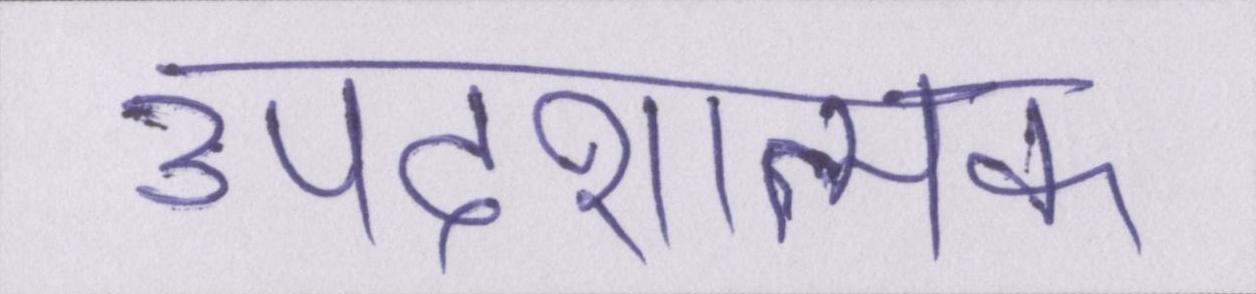 उपदशात्मक